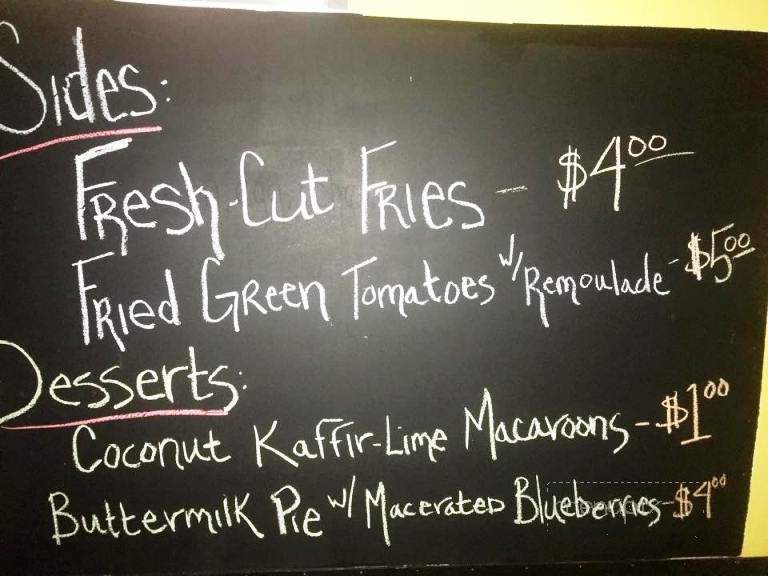 Sides:
Fresh-Cut Fries - $4.00
Fried Green Tomatoes w/ Remoulade - $5.00
Desserts:
Coconut Kaffir-Lime Macaroons - $1.00
Buttermilk Pie w/ Macerated Blueberries - $4.00